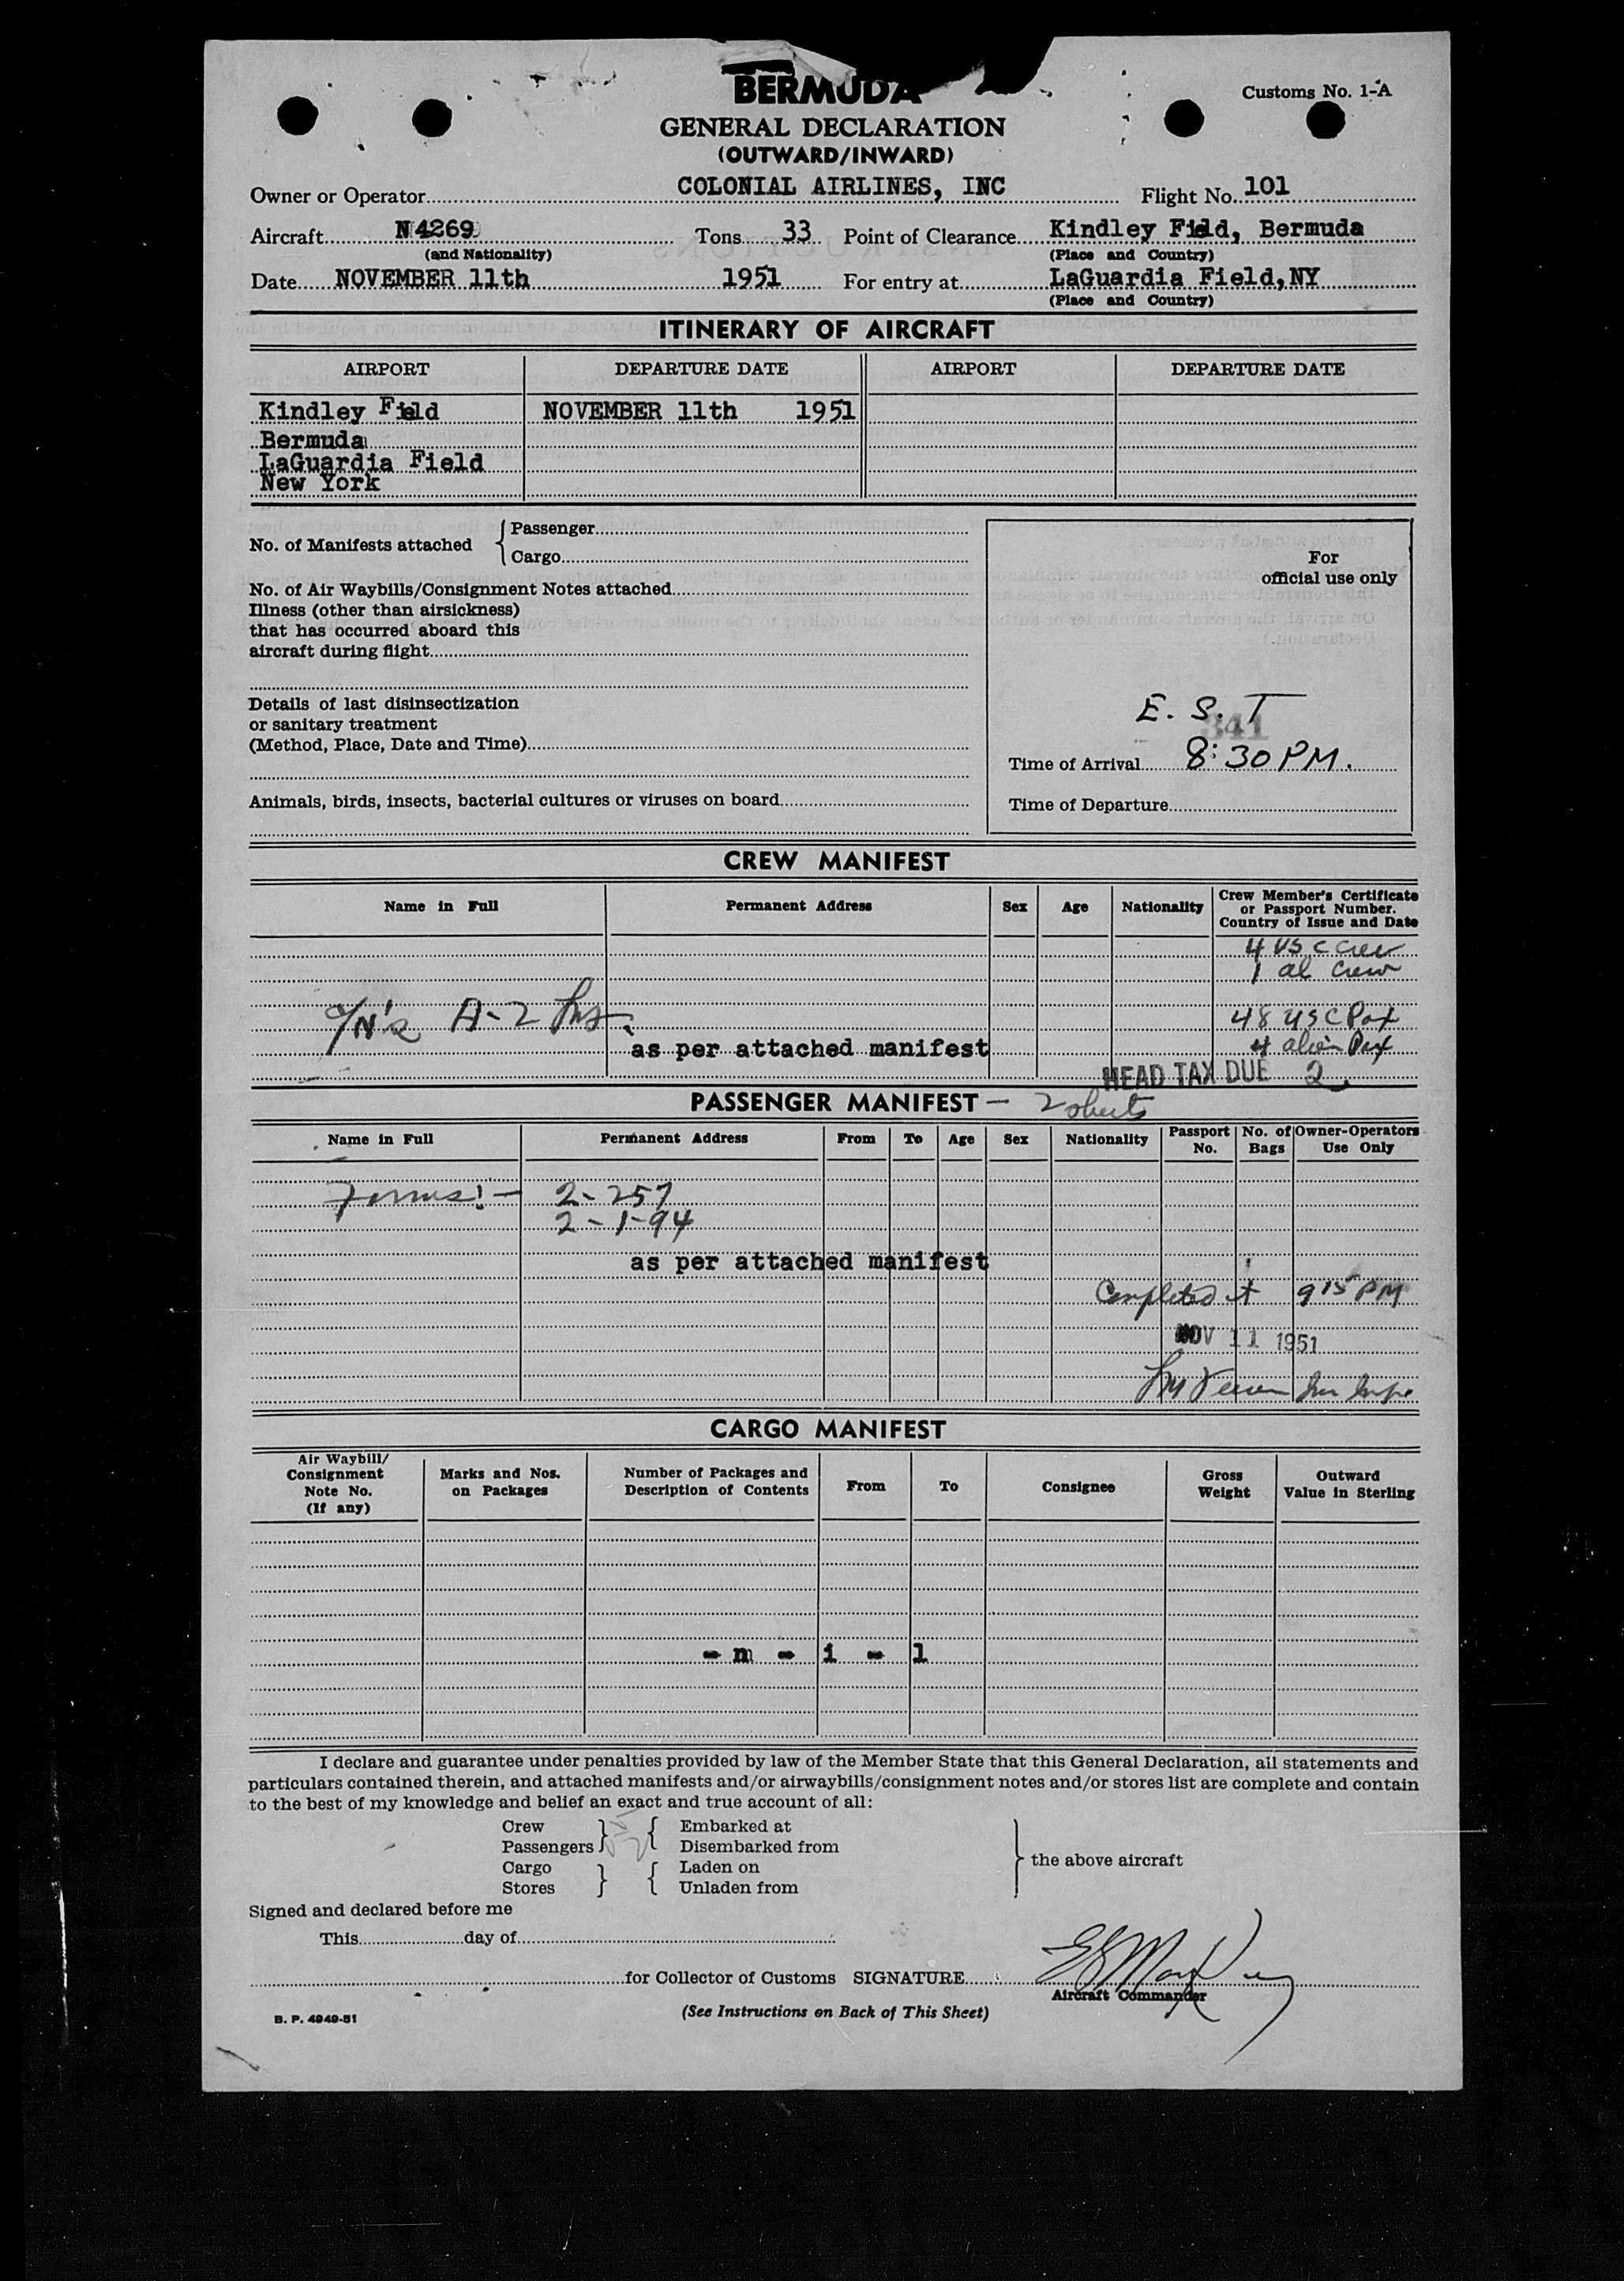 BERMUDA
Customs No. 1-A
GENERAL DECLARATION
(OUTWARD/INWARD)
Owner or Operator COLONIAL AIRLINES, INC Flight No. 101
Aircraft N4269 Tons 33 Point of Clearance Kindley Field, Bermuda
(and Nationality) (Place and Country)
Date NOVEMBER 11th 1951 For entry at LaGuardia Field,NY
(Place and Country)
ITINERARY OF AIRCRAFT
AIRPORT DEPARTURE DATE AIRPORT DEPARTURE DATE
Kindley Field NOVEMBER 11th 1951
Bermuda
LaGuardia Field
New York
No. of Manifests attached
Passenger
Cargo
For
official use only
No. of Air Waybills/Consignment Notes attached
Illness (other than airsickness)
that has occurred aboard this
aircraft during flight
Details of last disinsectization
or sanitary treatment
(Method, Place, Date and Time)
E. S. T
341
Time of Arrival 8:30 PM.
Animals, birds, insects, bacterial cultures or viruses on board
Time of Departure
CREW MANIFEST
Name in Full Permanent Address Sex Age Nationality Crew Member's Certificate
or Passport Number.
Country of Issue and Date
4 USC Crew
1 al Crew
A-2
48 USC Pax
as per attached manifest 4 alien Pax
HEAD TAX DUE 2
PASSENGER MANIFEST
Name in Full Permanent Address From To Age Sex Nationality Passport No. No. of Bags Owner-Operators Use Only
Forms:- 2-257
2-1-94
as per attached manifest
Completed at 9 15 PM
NOV 11 1951
CARGO MANIFEST
Air Waybill/
Consignment
Note No.
(If any)
Marks and Nos.
on Packages
Number of Packages and
Description of Contents
From To Consignee
Gross
Weight
Outward
Value in Sterling
- n - i - l
I declare and guarantee under penalties provided by law of the Member State that this General Declaration, all statements and
particulars contained therein, and attached manifests and/or airwaybills/consignment notes and/or stores list are complete and contain
to the best of my knowledge and belief an exact and true account of all:
Crew Embarked at
Passengers Disembarked from
Cargo Laden on
Stores Unladen from
the above aircraft
Signed and declared before me
This day of
for Collector of Customs SIGNATURE
Aircraft Commander
B. P. 4949-51
(See Instructions on Back of This Sheet)